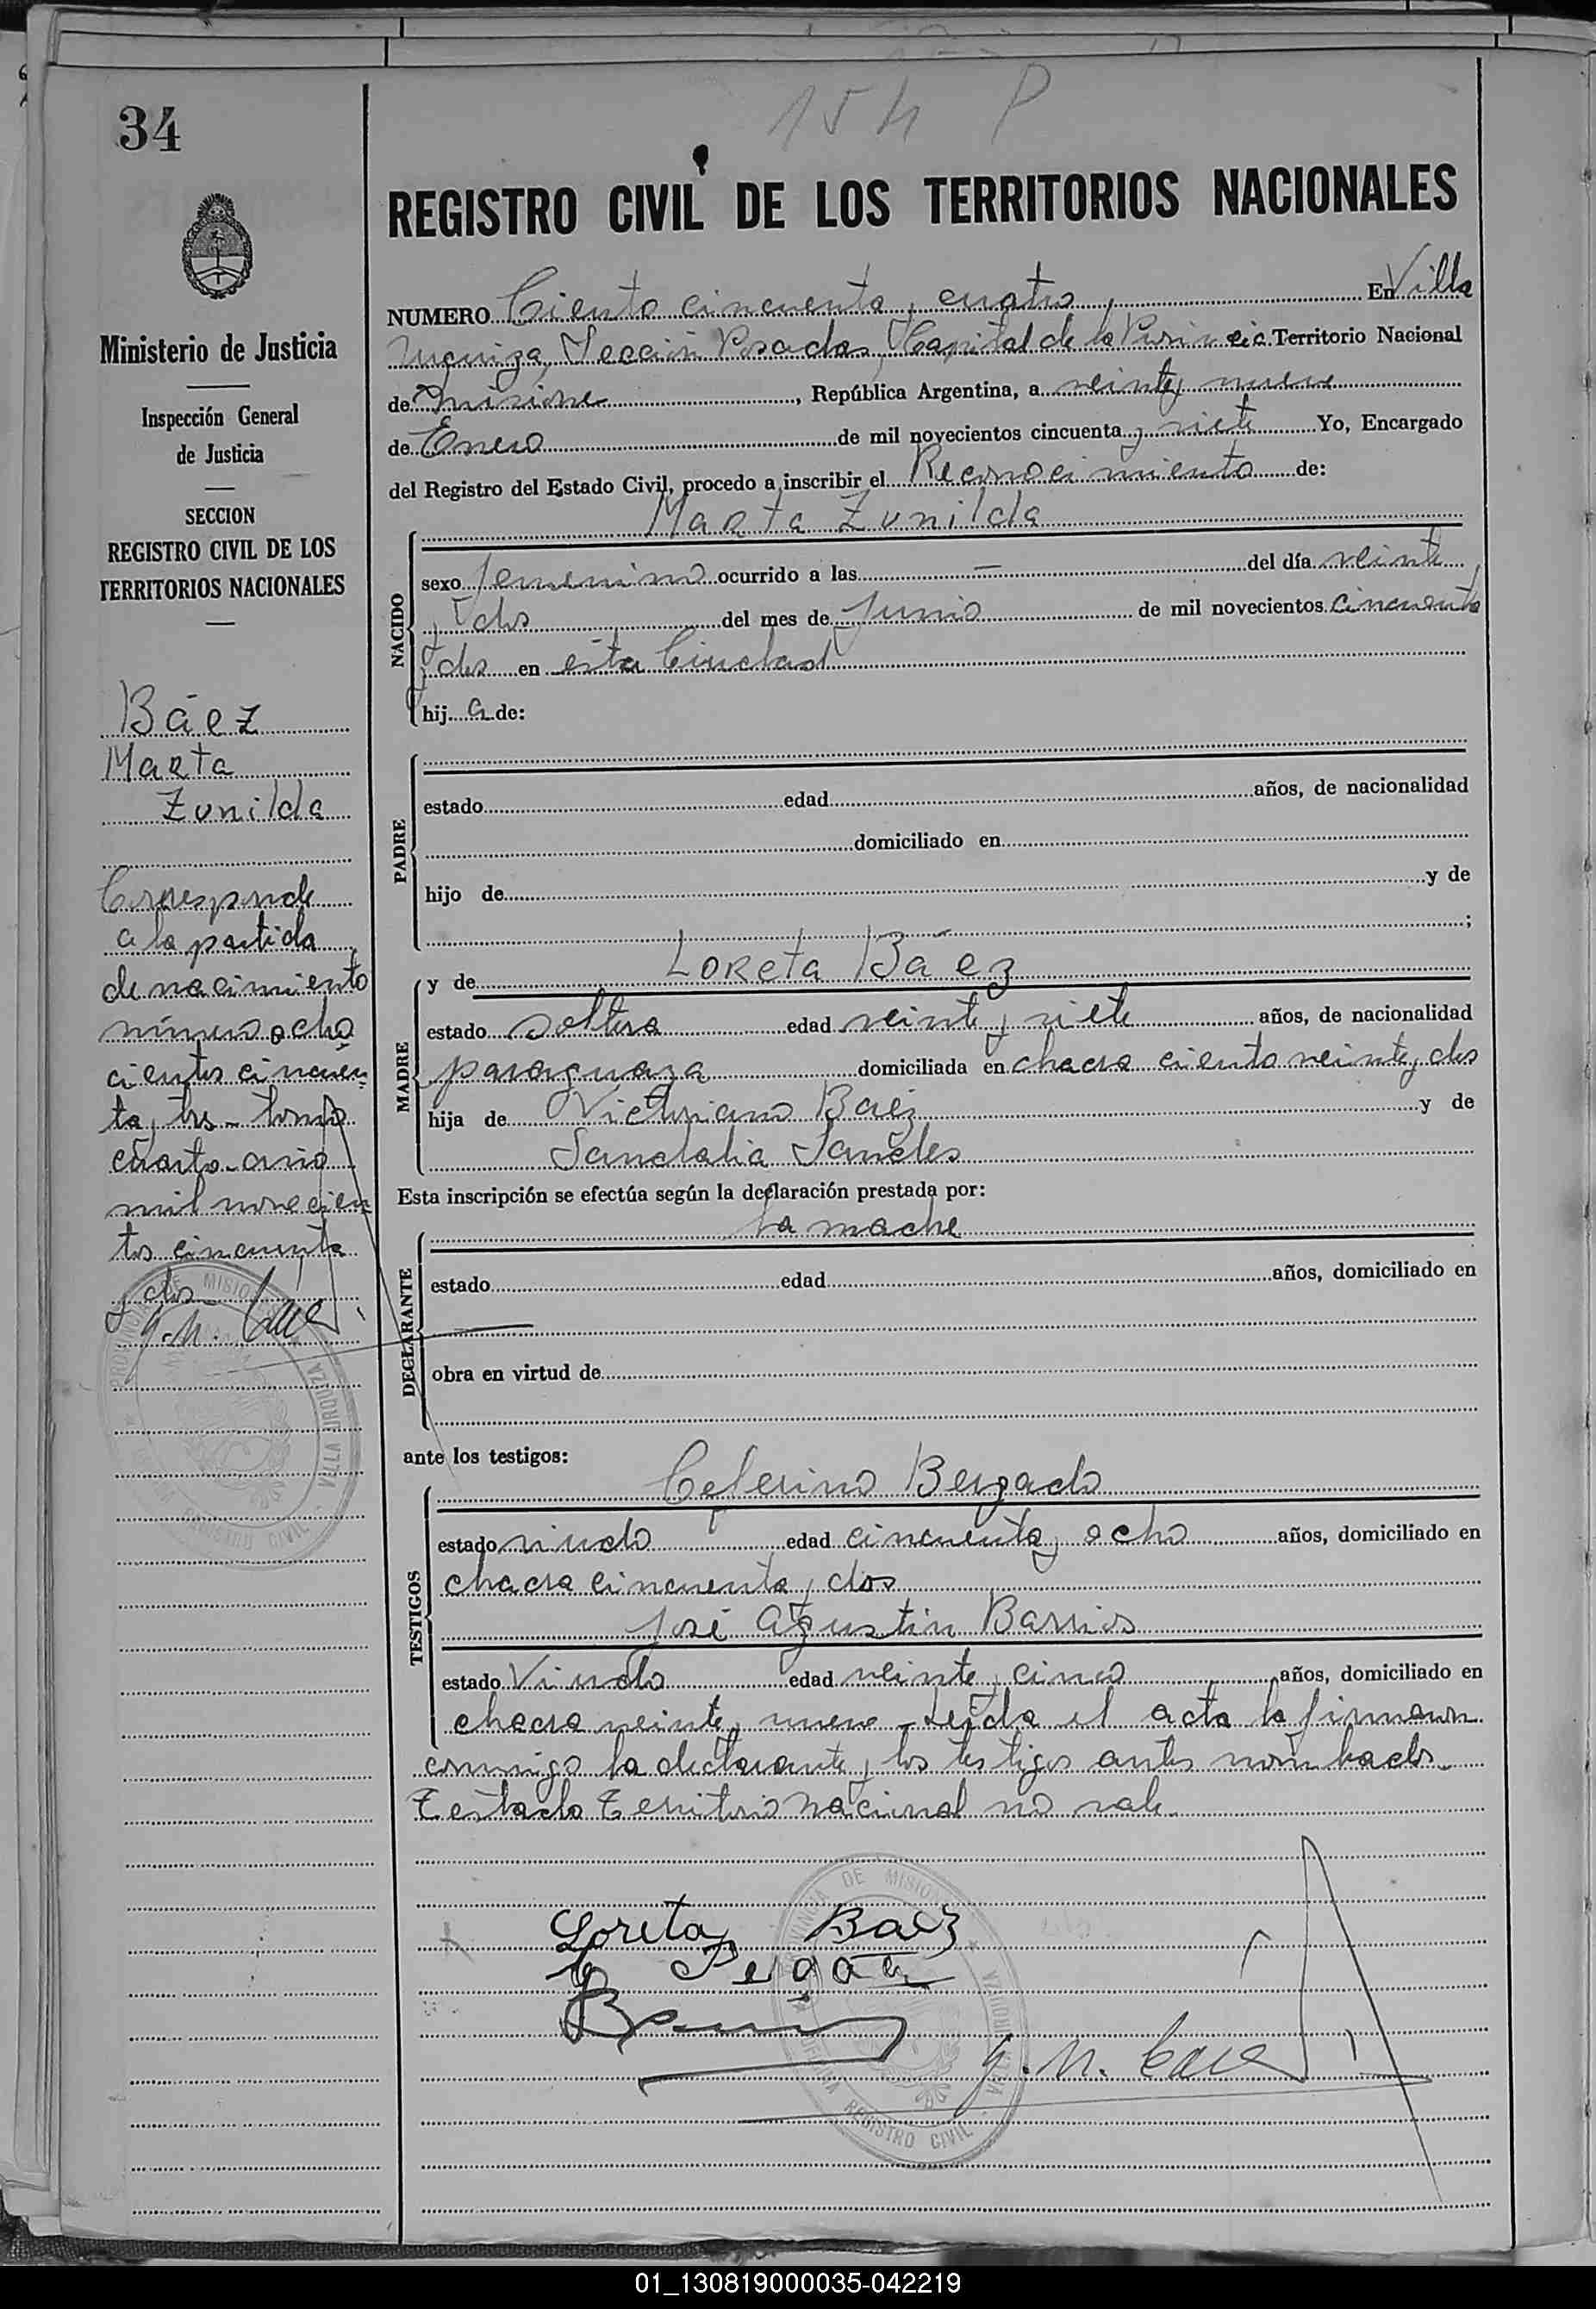 154 P
34
REGISTRO CIVIL DE LOS TERRITORIOS NACIONALES
Ministerio de Justicia
Inspección General
de Justicia
SECCION
REGISTRO CIVIL DE LOS
TERRITORIOS NACIONALES
Báez
Marta
Zunilda
Corresponde
a la partida
de nacimiento
número ocho
cientos cincuen
ta y tres - tomo
cuarto - año
mil novecien
tos cincuenta
y dos -
NUMERO Ciento cincuenta y cuatro, En Villa
Urquiza, Sección Posadas, Capital de la Provincia Territorio Nacional
de Misiones, República Argentina, a veinte y nueve
de Enero de mil novecientos cincuenta y siete Yo, Encargado
del Registro del Estado Civil, procedo a inscribir el Reconocimiento de:
Marta Zunilda
NACIDO
sexo femenino ocurrido a las — del día veinte
y dos del mes de Junio de mil novecientos cincuenta
y dos en esta Ciudad
hij a de:
PADRE
estado edad años, de nacionalidad
domiciliado en
hijo de y de
;
MADRE
y de Loreta Báez
estado soltera edad veinte y siete años, de nacionalidad
paraguaya domiciliada en chacra ciento veinte y dos
hija de Victoriano Baéz y de
Sandalia
Esta inscripción se efectúa según la declaración prestada por:
DECLARANTE
la madre
estado edad años, domiciliado en
obra en virtud de
ante los testigos:
TESTIGOS
Ceferino Bergado
estado viudo edad cincuenta y ocho años, domiciliado en
chacra cincuenta y dos
José Agustín Barrios
estado Viudo edad veinte y cinco años, domiciliado en
chacra veinte y nueve - Leída el acta la firmaron
conmigo la declarante y los testigos antes nombrados -
Testado Territorio Nacional no vale
Loreta Baez
PROVINCIA DE MISIONES
VILLA URQUIZA
OFICINA REGISTRO CIVIL
01_130819000035-042219